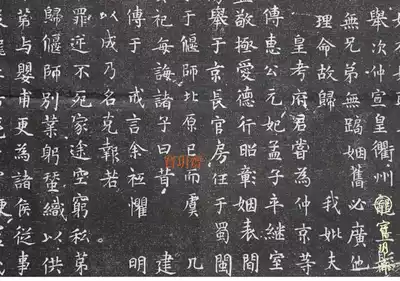 舉次仲宣皇衢州
無兄弟無蹋姻舊必廣他
理命故歸 我妣夫
皇考府君嘗為仲京等
傳惠公元妃孟子卒継室
至敬極愛德行昭彰姻表間
舉于京長官房任于蜀閬
于偃師北原已而虞 几
妃每誨諸子曰昔 建
傳于 戒言余祗懼 明
以成乃名克報若
罪逆不死家途空窮私第
歸偃師別葉躬蠶織以供
弟與嬰甫更為諸侯從事